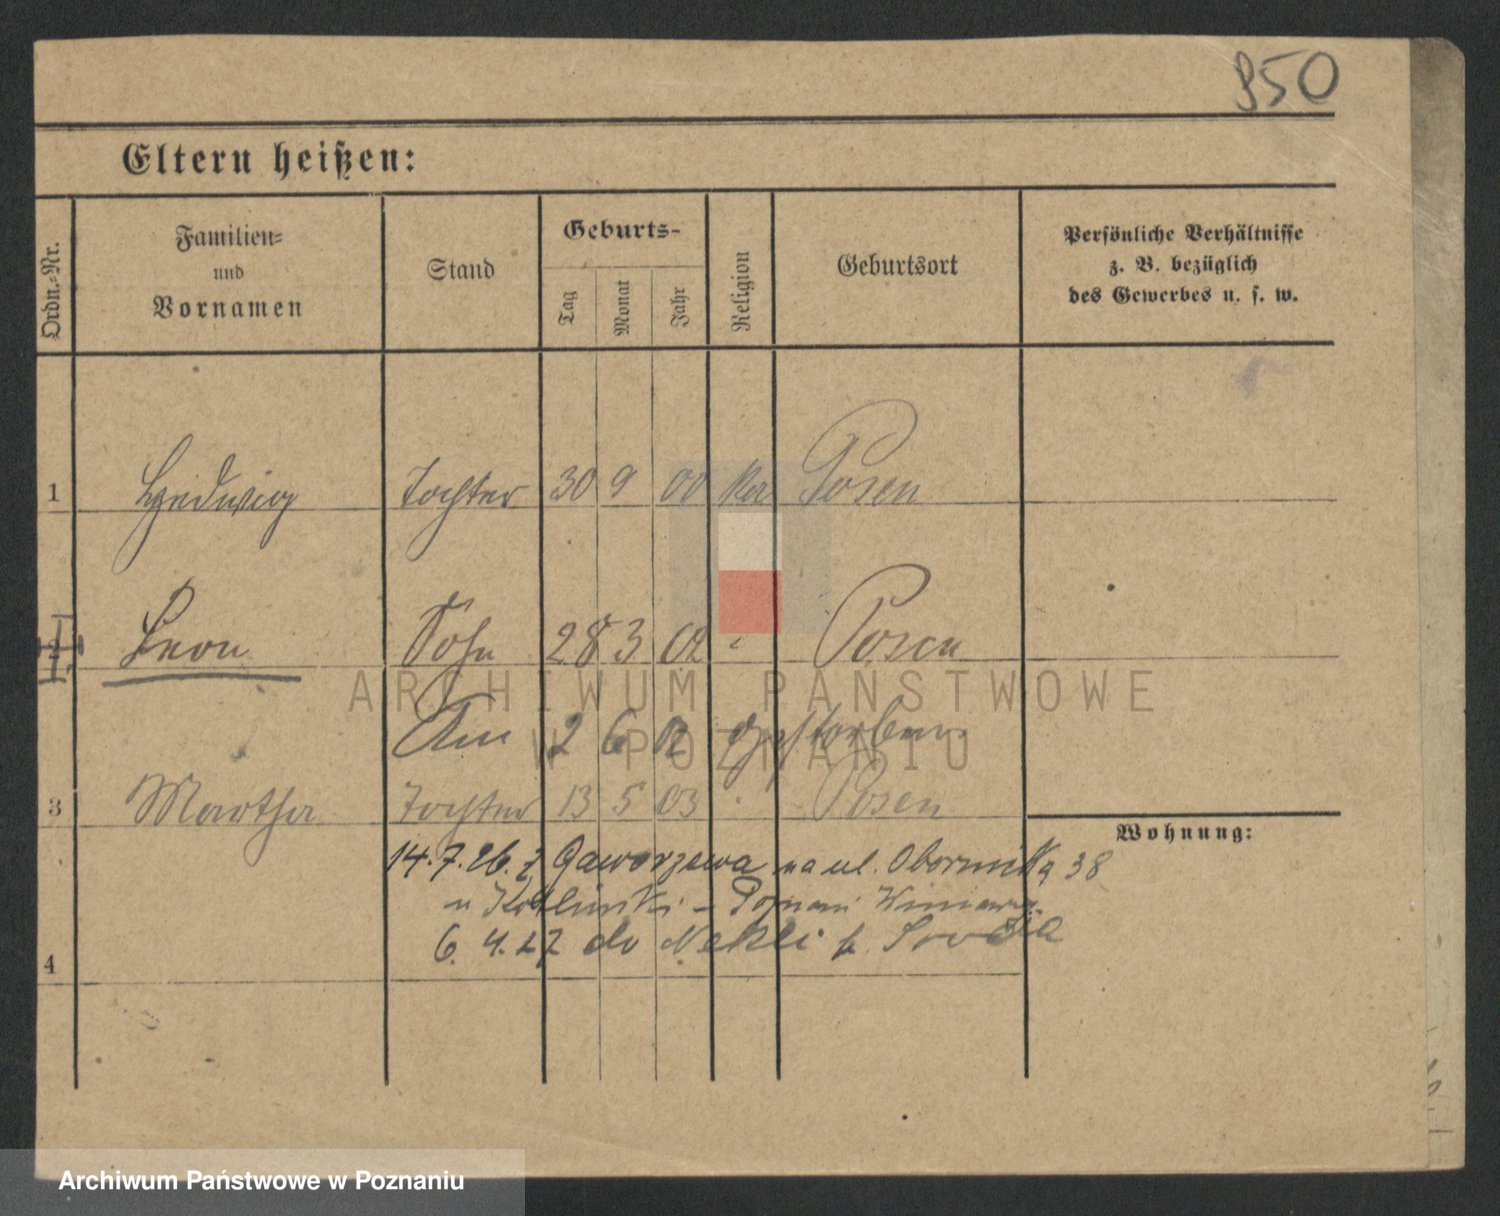 950
Eltern heißen:
Ordn.-Nr.
Familien-
und
Vornamen
Stand
Geburts-
Tag
Monat
Jahr
Religion
Geburtsort
Persönliche Verhältnisse
z. B. bezüglich
des Gewerbes u. s. w.
1 Hedwig Tochter 30 9 00 ka Posen
2 Leon Sohn 28 3 02 " Posen
Am 2 6 02 gestorben
3 Martha Tochter 13 5 03 " Posen
Wohnung:
14.7.26. z Gaworzewa na ul. Obornicka 38
u - Poznań Winiary
6. 4. 27 do Nekli p. Środa
4
ARCHIWUM PAŃSTWOWE
W POZNANIU
Archiwum Państwowe w Poznaniu